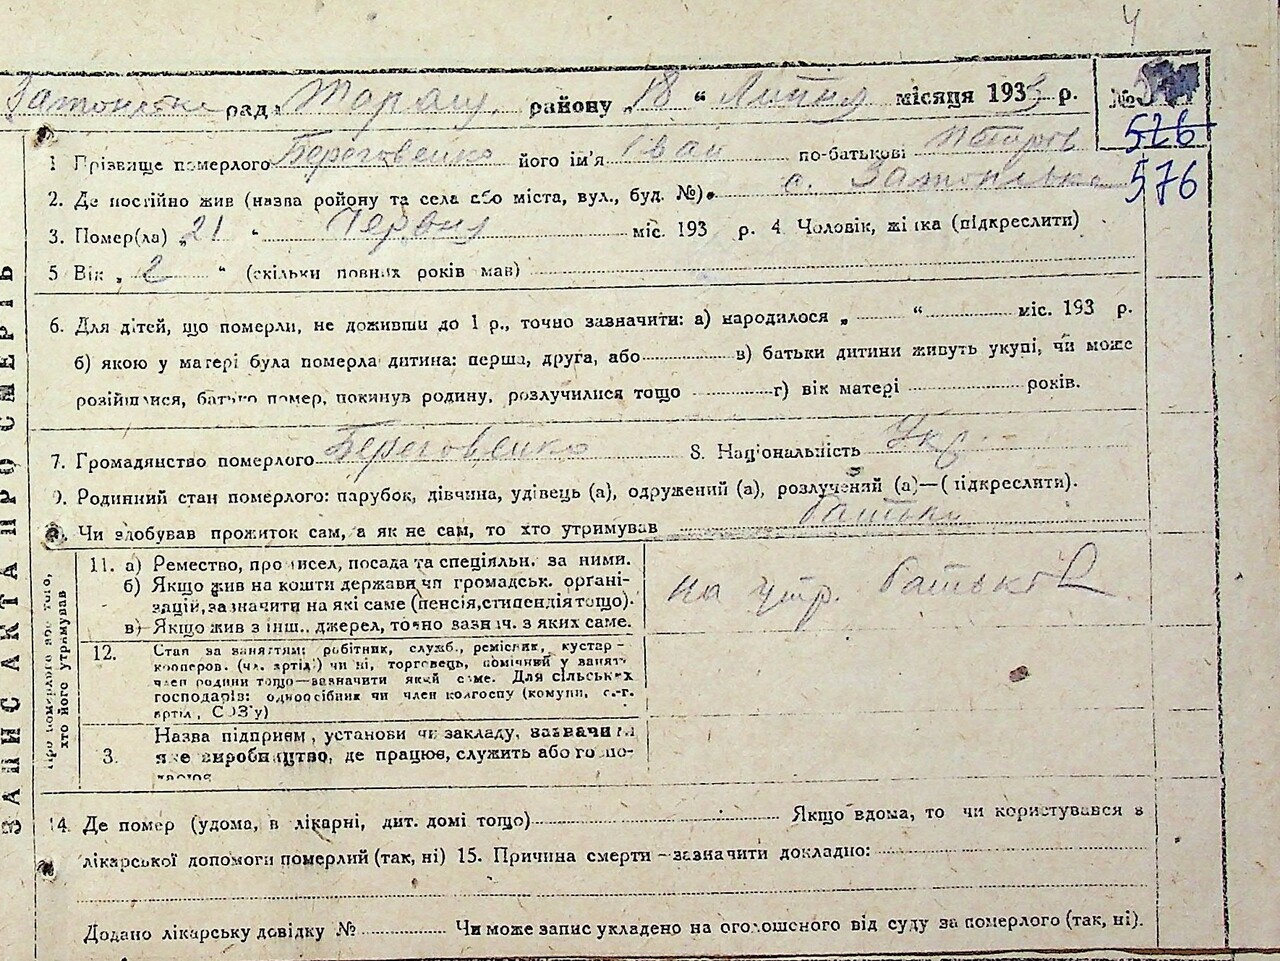 4
рад Таращ. району „18“ Липня місяця 1933 р. №
526
1 Прізвище померлого Береговенко його ім'я Іван по-батькові Петров
576
2. Де постійно жив (назва району та села або міста, вул., буд. №) с. Затонська
3. Помер(ла) „21“ Червня міс. 193 р. 4. Чоловік, жінка (підкреслити)
5 Вік „2“ (скільки повних років мав)
6. Для дітей, що померли, не доживши до 1 р., точно зазначити: а) народилося „ “ міс. 193 р.
б) якою у матері була померла дитина: перша, друга, або в) батьки дитини живуть укупі, чи може
розійшлися, батько помер, покинув родину, розлучилися тощо г) вік матері років.
7. Громадянство померлого Береговенко 8. Національність Укр.
9. Родинний стан померлого: парубок, дівчина, удівець (а), одружений (а), розлучений (а)—(підкреслити).
Чи здобував прожиток сам, а як не сам, то хто утримував батьки
11. а) Ремество, промисел, посада та спеціяльн. за ними.
б) Якщо жив на кошти держави чи громадськ. органі-
зацій, зазначити на які саме (пенсія, стипендія тощо).
в) Якщо жив з інш. джерел, точно зазнач. з яких саме.
на утр. батьків
12. Стан за заняттям: робітник, служб., ремісник, кустар-
кооперов. (чл. артіл) чи ні, торговець, помічний у занят.
член родини тощо—зазначити який саме. Для сільських
господарів: одноосібник чи член колгоспу (комуни, с.-г.
артіл, СОЗ'у)
3. Назва підприєм, установи чи закладу, зазначити
яке виробництво, де працює, служить або госпо-
14. Де помер (удома, в лікарні, дит. домі тощо) Якщо вдома, то чи користувався з
лікарської допомоги померлий (так, ні) 15. Причина смерти—зазначити докладно:
Додано лікарську довідку № Чи може запис укладено на оголошеного від суду за померлого (так, ні).
ЗАПИС АКТА ПРО СМЕРТЬ
Про померлого або того,
хто його утримував